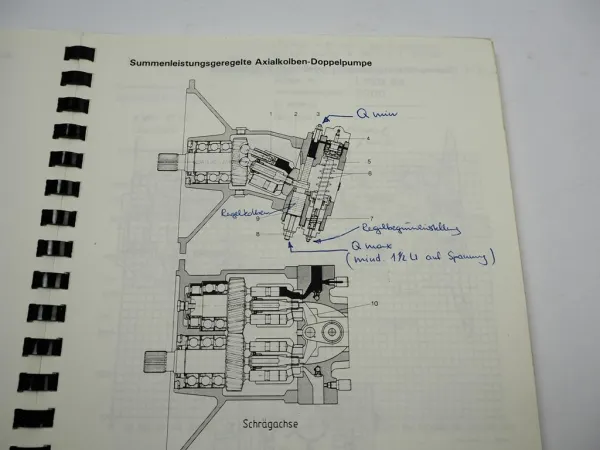 Summenleistungsgeregelte Axialkolben-Doppelpumpe
Q min
1 2 3
4
5
6
Regelkolben
9
7
Regelbeginneinstellung
8
Q max
(mind. 1½ U auf Spannung)
10
Schrägachse